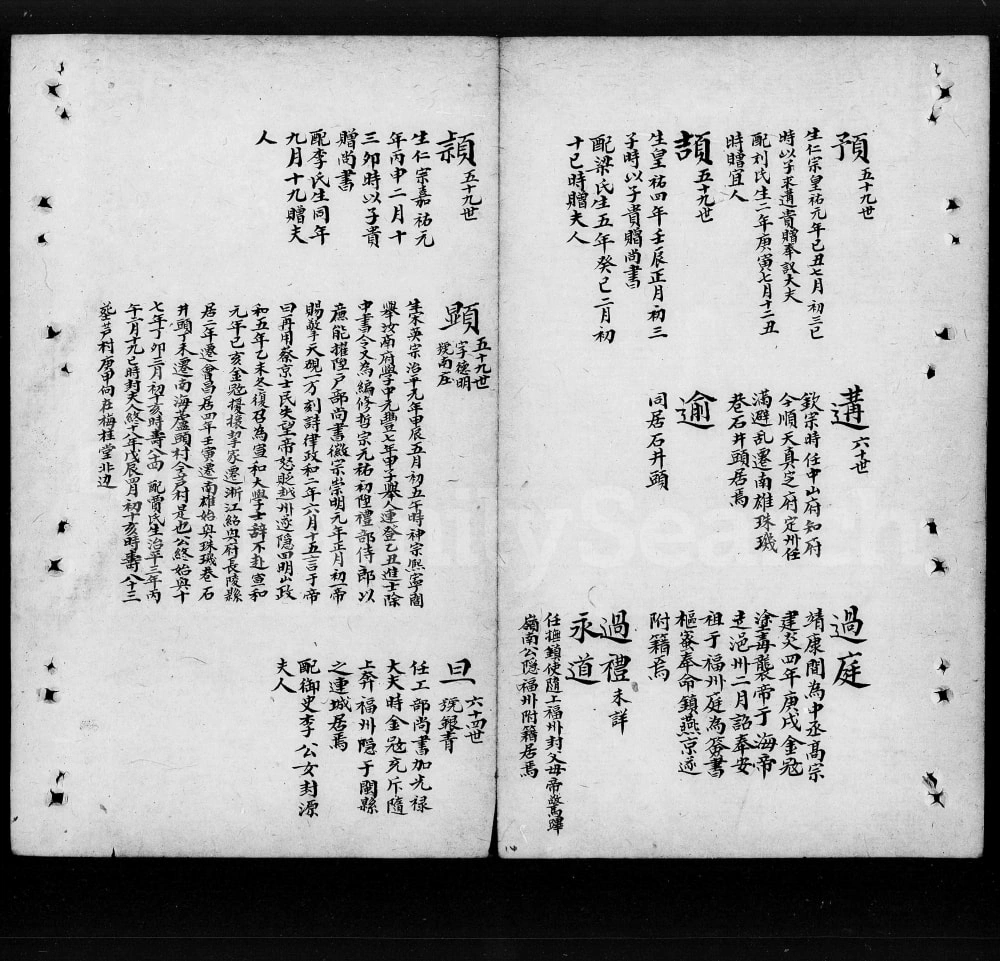 預 五十九世
生仁宗皇祐元年己丑七月初三巳
時以子來遘貴贈奉議大夫
配刘氏生二年庚寅七月十二丑
時贈宜人
頡 五十九世
生皇祐四年壬辰正月初三
子時以子貴贈尚書
配梁氏生五年癸巳二月初
十巳時贈夫人
遘 六十世
欽宗時任中山府知府
今順天真定府定州任
滿避乱遷南雄珠璣
巷石井頭居焉
逾
同居石井頭
過庭
靖康間為中丞高宗
建炎四年庚戌金冦
塗毒襲帝于海帝
走浥州二月詔奉安
祖于福州庭為簽書
樞宻奉命鎮燕京遂
附籍焉
過禮 未詳
永道
任撫鎮使隨上福州封父母帝驚蹕
嶺南公隱福州附籍居焉
頴 五十九世
生仁宗嘉祐元
年丙申二月十
三卯時以子貴
贈尚書
配李氏生同年
九月十九贈夫
人
顯 五十九世
字德明
号南庄
生宋英宗治平元年甲辰五月初五午時神宗熙寧間
舉汝南府學中元豐七年甲子舉人連登乙丑進士除
中書令文為編修哲宗元祐初陞禮部侍郎以
廉能擢陞户部尚書徽宗崇明元年正月初一帝
賜擎天硯一方刻詩律政和二年六月十五言于帝
曰再用蔡京士民失望帝怒貶越州遂隐四明山政
和五年乙未冬復召為宣和大學士辞不赴宣和
元年己亥金冦擾攘挈家遷浙江紹興府長陵縣
居二年遷會昌居四年壬寅遷南雄始興珠璣巷石
井頭丁未遷南海蘆頭村今芦村是也公終紹興十
七年丁卯三月初十亥時壽八四 配曹氏生治平三年丙
午六月十九巳時封夫人終十八年戊辰四月初十亥時壽八十三
塟芦村庚甲向在梅桂堂北边
旦 六十四世
号銀青
任工部尚書加光禄
大夫時金冦充斥隨
上奔福州隐于閩縣
之連城居焉
配御史李公女封源
夫人